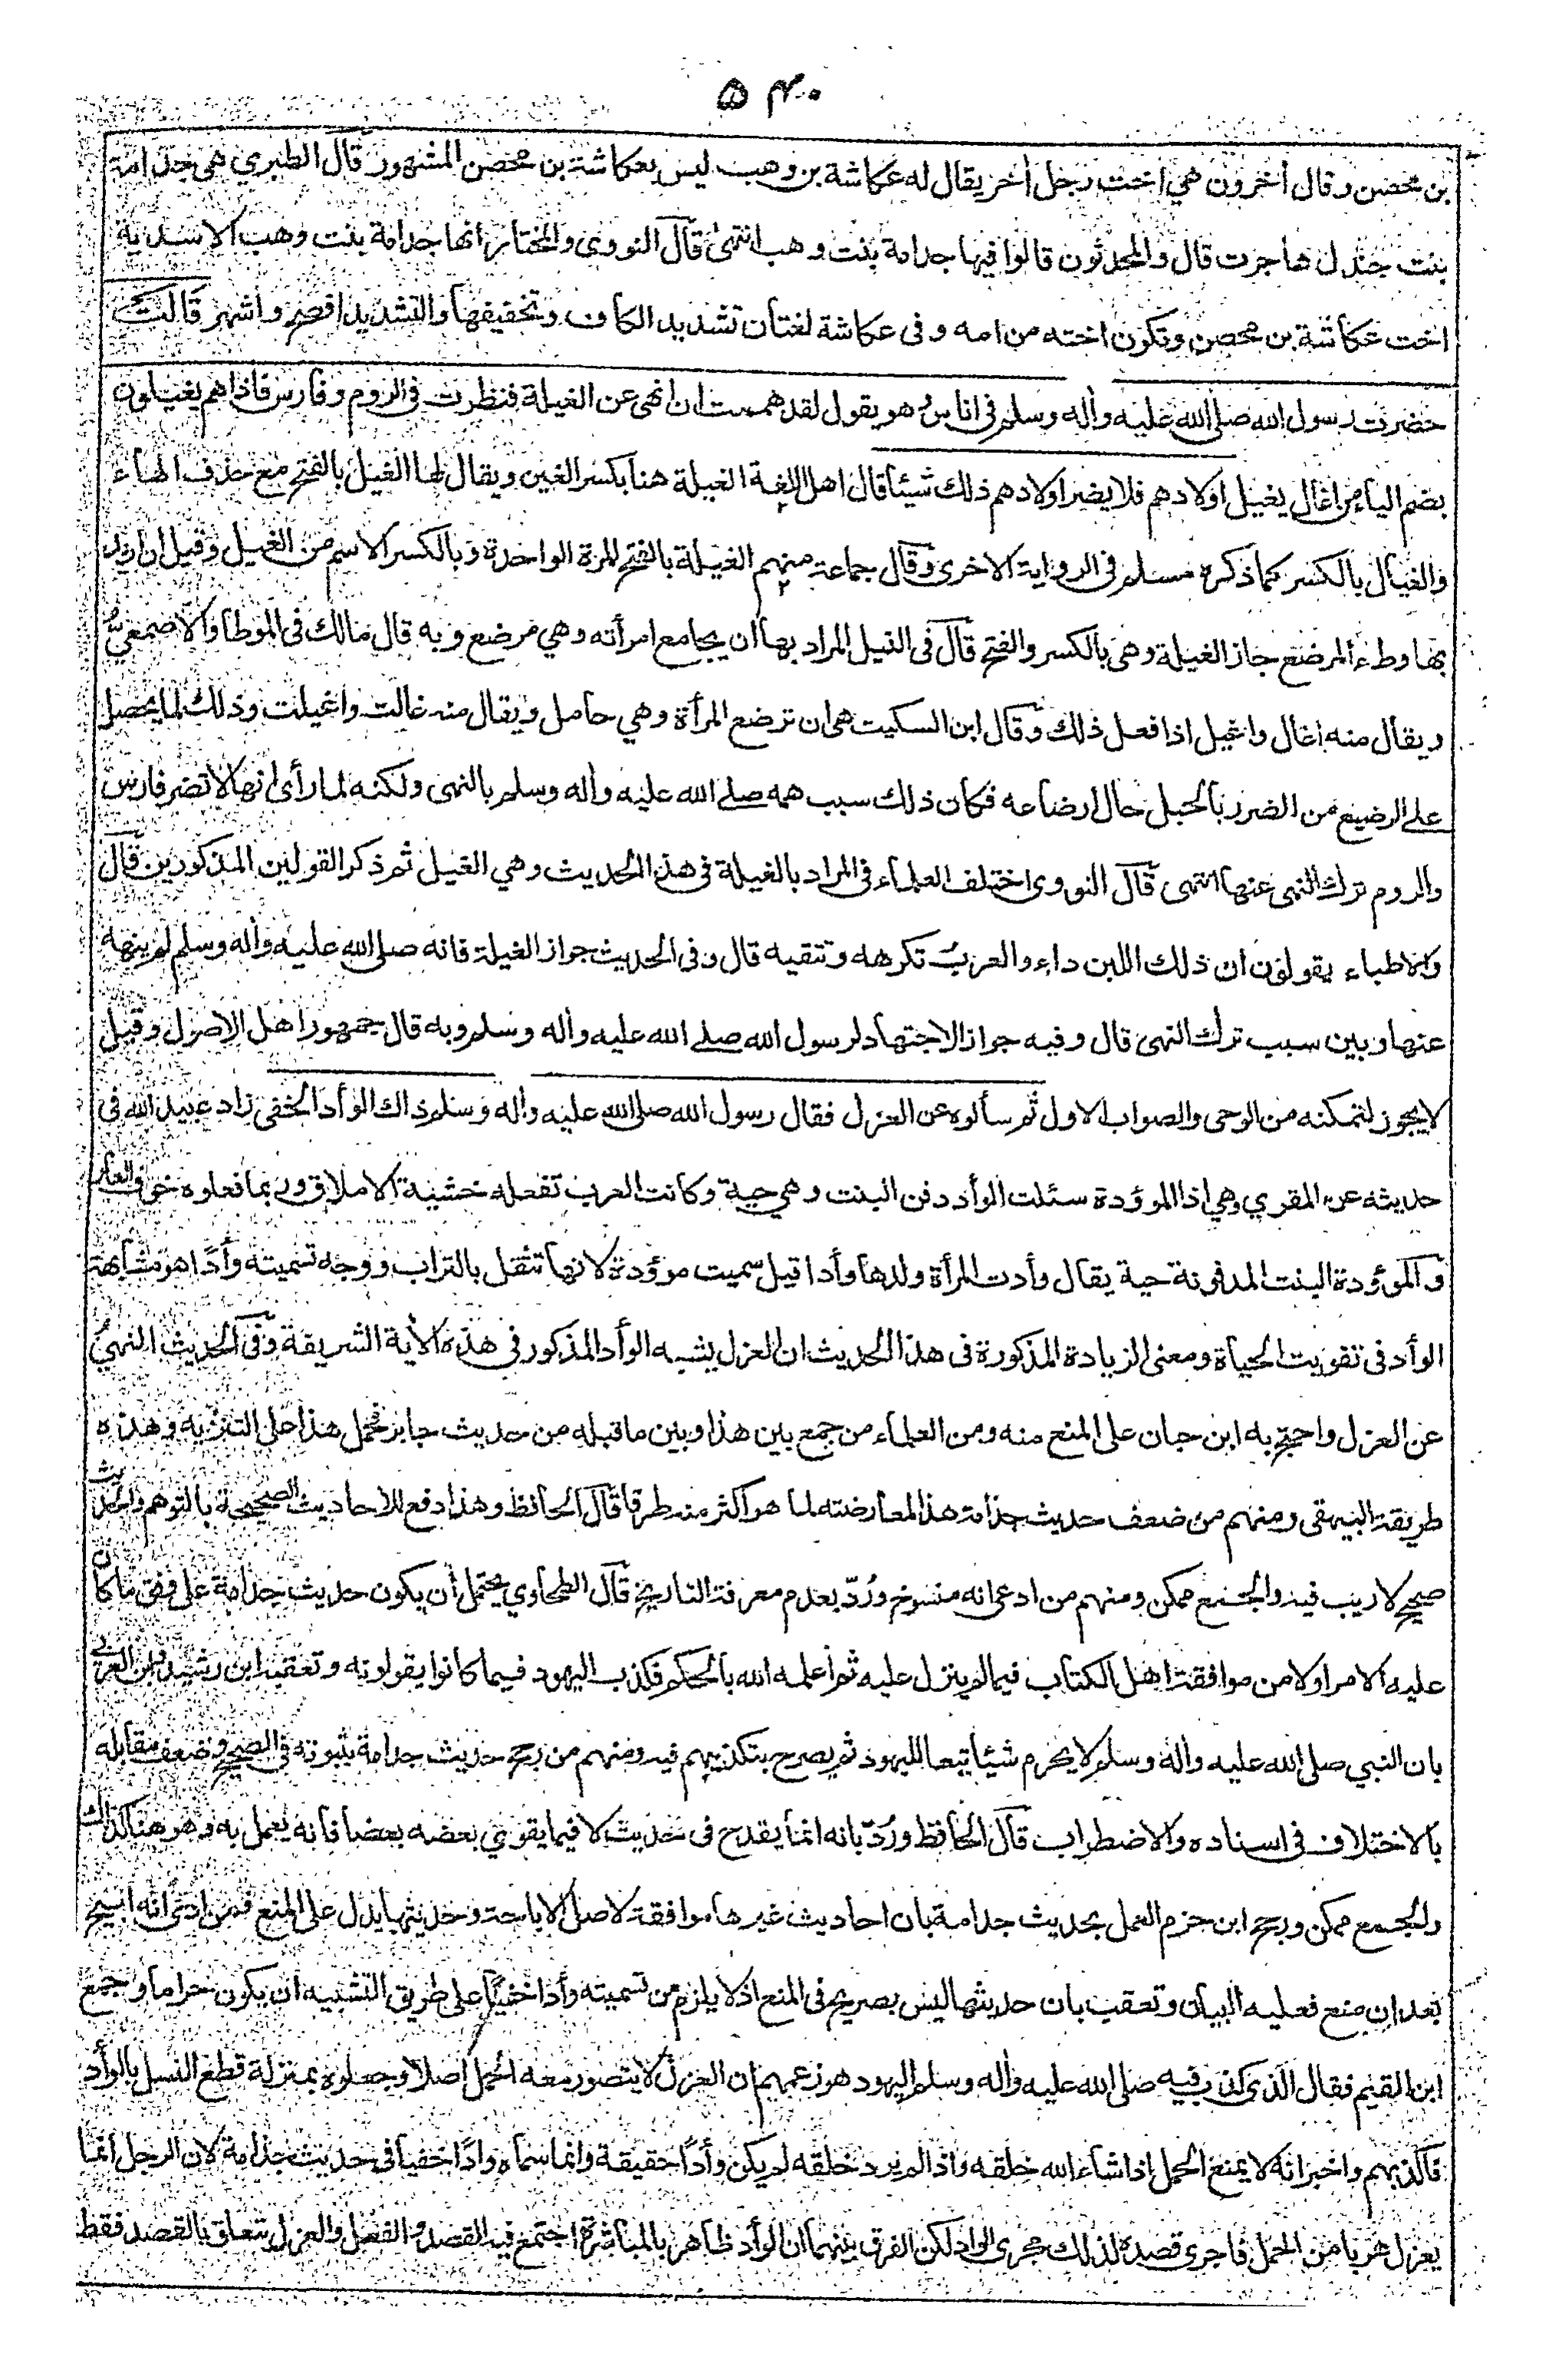 ٥٤٠
بن محصن وقال أخرون هي اخت رجل أخر يقال له عكاشة بن وهب ليس بعكاشة بن محصن المشهور قال الطبري هي جدامة
بنت جندل هاجرت قال والمحدثون قالوا فيها جدامة بنت وهب انتهى قال النووى والمختار انها جدامة بنت وهب الاسدية
اخت عكاشة بن محصن وتكون اخته من امه وفى عكاشة لغتان تشديد الكاف وتخفيفها والتشديد افصح واشهر قالت
حضرت رسول الله صلى الله عليه وأله وسلم فى اناس وهو يقول لقد هممت ان انهى عن الغيلة فنظرت فى الروم وفارس فاذا هم يغيلون
بضم الياء من اغال يغيل اولادهم فلا يضر اولادهم ذلك شيئا قال اهل اللغة الغيلة هنا بكسر الغين ويقال لها الغيل بالفتح مع حذف الهاء
والغيال بالكسر كما ذكره مسلم فى الرواية الاخرى وقال جماعة منهم الغيلة بالفتح للمرة الواحدة وبالكسر الاسم من الغيل وقيل ان اريد
بها وطء المرضع جاز الغيلة وهى بالكسر والفتح قال فى النيل المراد بها ان يجامع امرأته وهي مرضع وبه قال مالك فى الموطا والاصمعي
ويقال منه اغال واغيل اذا فعل ذلك وقال ابن السكيت هى ان ترضع المرأة وهي حامل ويقال منه غالت واغيلت وذلك لما يحصل
على الرضيع من الضرر بالحبل حال ارضاعه فكان ذلك سبب همه صلى الله عليه وأله وسلم بالنهى ولكنه لما رأى انها لا تضر فارس
والروم ترك النهى عنها انتهى قال النووى اختلف العلماء فى المراد بالغيلة فى هذا الحديث وهي الغيل ثم ذكر القولين المذكورين قال
والاطباء يقولون ان ذلك اللبن داء والعرب تكرهه وتتقيه قال وفى الحديث جواز الغيلة فانه صلى الله عليه وأله وسلم لم ينهه
عنها وبين سبب ترك النهى قال وفيه جواز الاجتهاد لرسول الله صلى الله عليه وأله وسلم وبه قال جمهور اهل الاصول وقيل
لا يجوز لتمكنه من الوحى والصواب الاول ثم سألوه عن العزل فقال رسول الله صلى الله عليه وأله وسلم ذاك الوأد الخفى زاد عبيد الله فى
حديثه عن المقري وهي اذا الموؤدة سئلت الوأد دفن البنت وهي حية وكانت العرب تفعله خشية الاملاق وربما فعلوه خوف العار
والموؤدة البنت المدفونة حية يقال وأدت المرأة ولدها وأدا قيل سميت موؤدة لانها تثقل بالتراب ووجه تسميته وأدا هو مشابهة
الوأد فى تفويت الحياة ومعنى الزيادة المذكورة فى هذا الحديث ان العزل يشبه الوأد المذكور فى هذه الأية الشريفة وفى الحديث النهي
عن العزل واحتج به ابن حبان على المنع منه ومن العلماء من جمع بين هذا وبين ما قبله من حديث جابر فحمل هذا على التنزيه وهذه
طريقة البيهقى ومنهم من ضعف حديث جذامة هذا المعارضته لما هو اكثر منه طرقا قال الحافظ وهذا دفع للاحاديث الصحيحة بالتوهم والحديث
صحيح لا ريب فيه والجمع ممكن ومنهم من ادعى انه منسوخ ورُدّ بعدم معرفة التاريخ قال الطحاوي يحتمل أن يكون حديث جدامة على وفق ما كان
عليه الامر اولا من موافقة اهل الكتاب فيما لم ينزل عليه ثم اعلمه الله بالحكم فكذب اليهود فيما كانوا يقولونه وتعقبه ابن رشيد وابن العربى
بان النبي صلى الله عليه واله وسلم لا يحرم شيئا تبعا لليهود ثم يصرح بتكذيبهم فيه ومنهم من رجح حديث جدامة بثبوته فى الصحيح وضعف مقابله
بالاختلاف فى اسناده والاضطراب قال الحافظ ورُدّ بانه انما يقدح فى حديث لا فيما يقوي بعضه بعضا فانه يعمل به وهو هنا كذلك
والجمع ممكن ورجح ابن حزم العمل بحديث جدامة بان احاديث غيرها موافقة لاصل الاباحة وحديثها يدل على المنع فمن ادعى انه ابيح
بعد ان منع فعليه البيان وتعقب بان حديثها ليس بصريح فى المنع اذ لا يلزم من تسميته وأدا خفيًا على طريق التشبيه ان يكون حراما وجمع
ابن القيم فقال الذى كذب فيه صلى الله عليه وأله وسلم اليهود هو زعمهم ان العزل لا يتصور معه الحمل اصلا وجعلوه بمنزلة قطع النسل بالوأد
فاكذبهم واخبر انه لا يمنع الحمل اذا شاء الله خلقه واذا لم يرد خلقه لم يكن وأدًا حقيقة وانما سماه وادًا خفيا فى حديث جذامة لان الرجل انما
يعزل هربا من الحمل فاجرى قصده لذلك مجرى الواد لكن الفرق بينهما ان الوأد ظاهر بالمباشرة اجتمع فيه القصد والفعل والعزل يتعلق بالقصد فقط